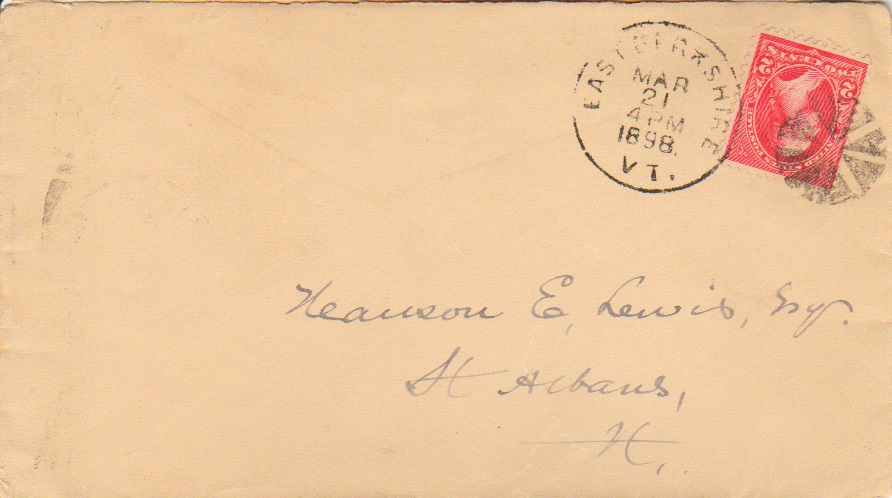 EAST BERKSHIRE
MAR
21
4 PM
1898.
VT.
2 TWO CENTS 2
UNITED STATES POSTAGE
E. Lewis, Esq.
St Albans,
Vt.